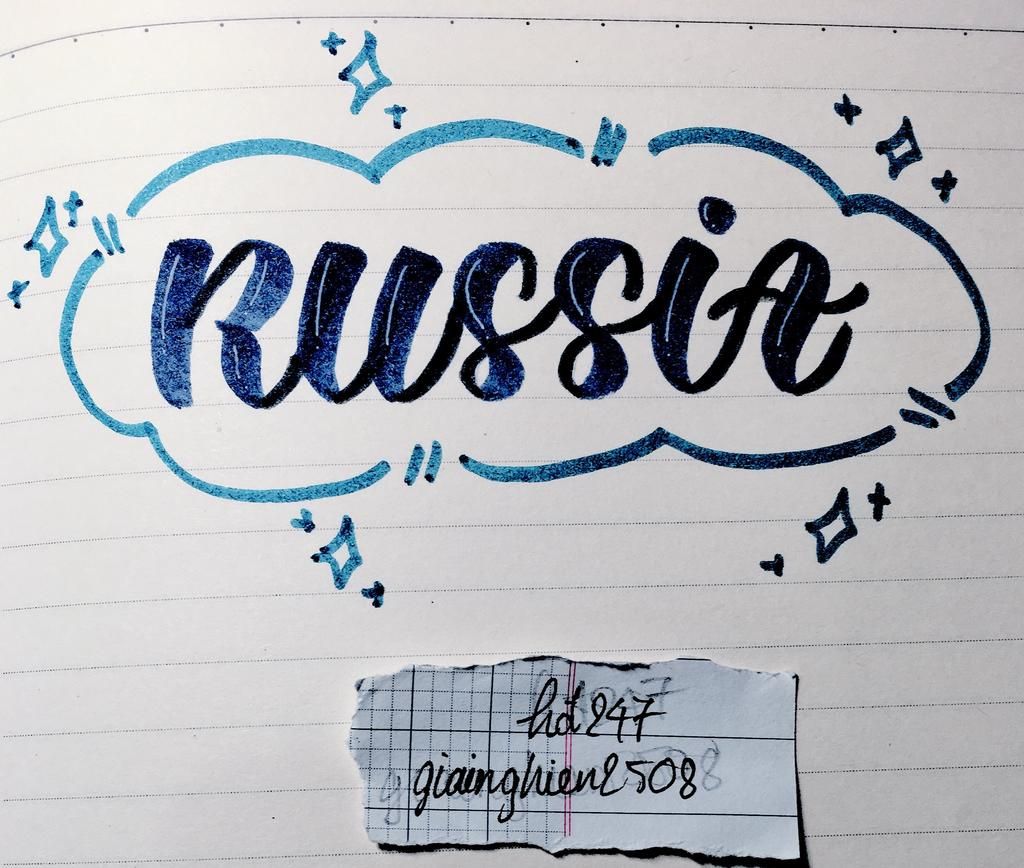 RUSSIA
hd247
giainghien2508